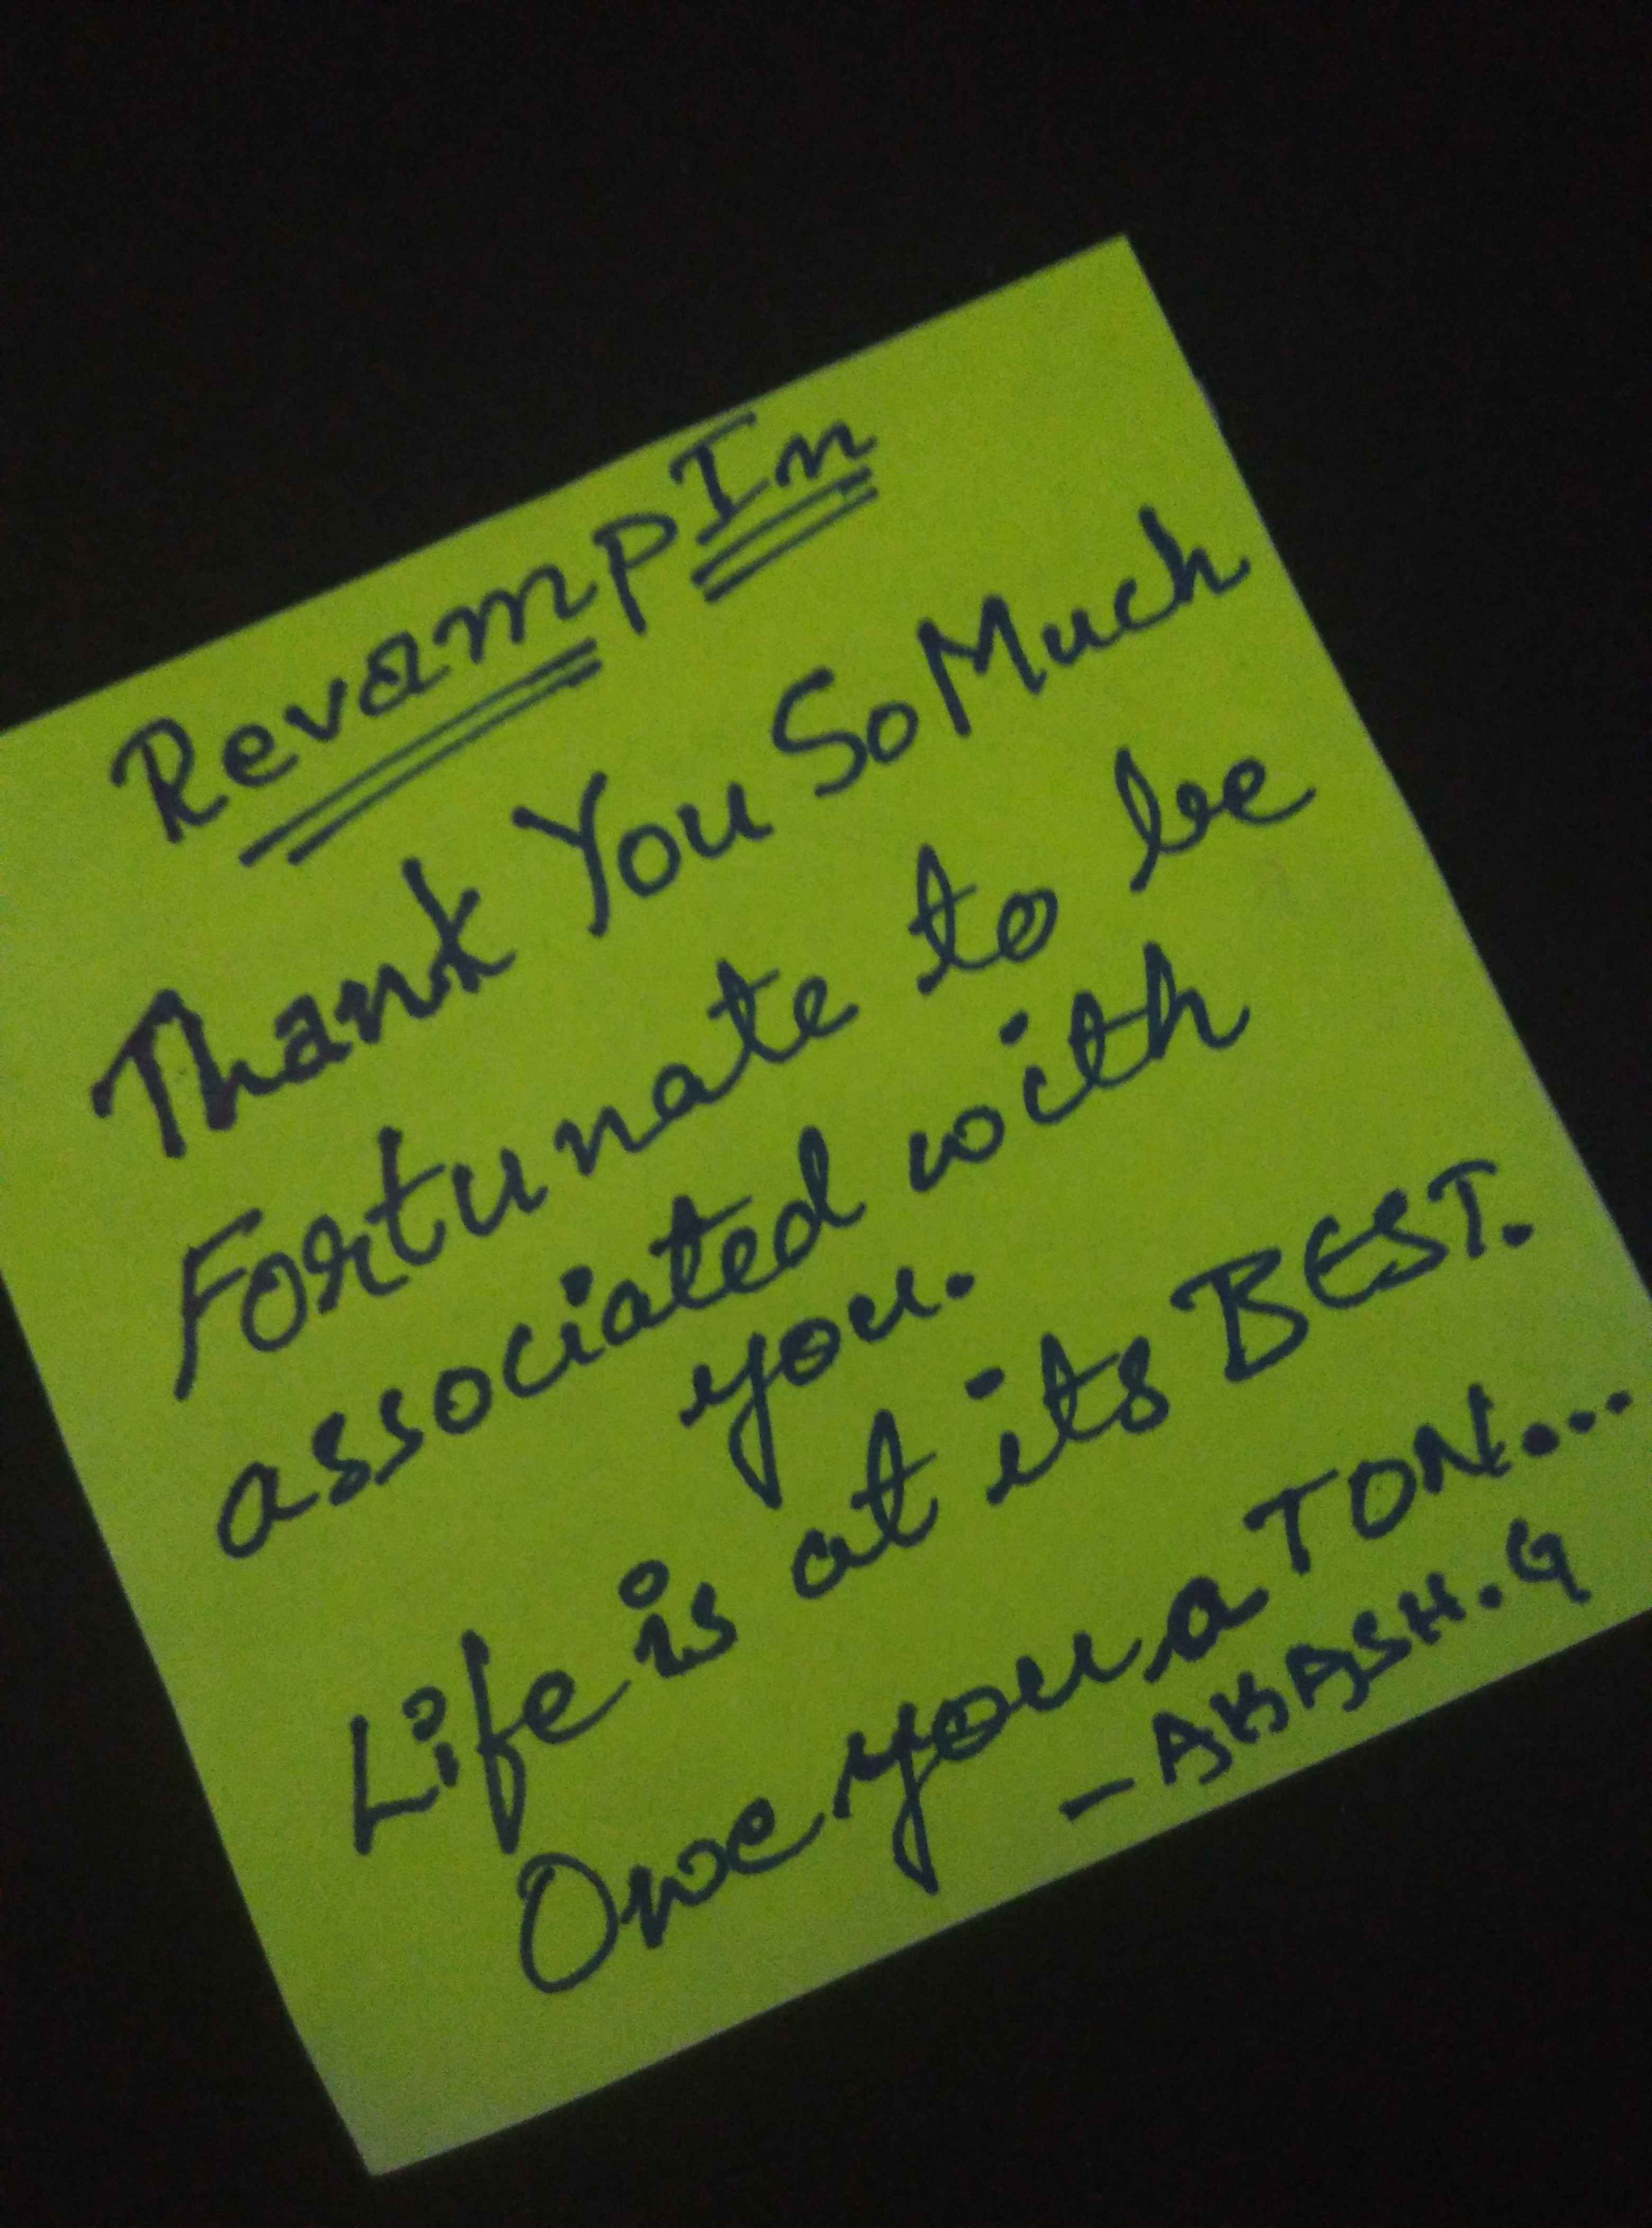 RevampIn
Thank You So Much
Fortunate to be
associated with
you.
Life is at its BEST.
Owe you a TON...
- AKASH.G